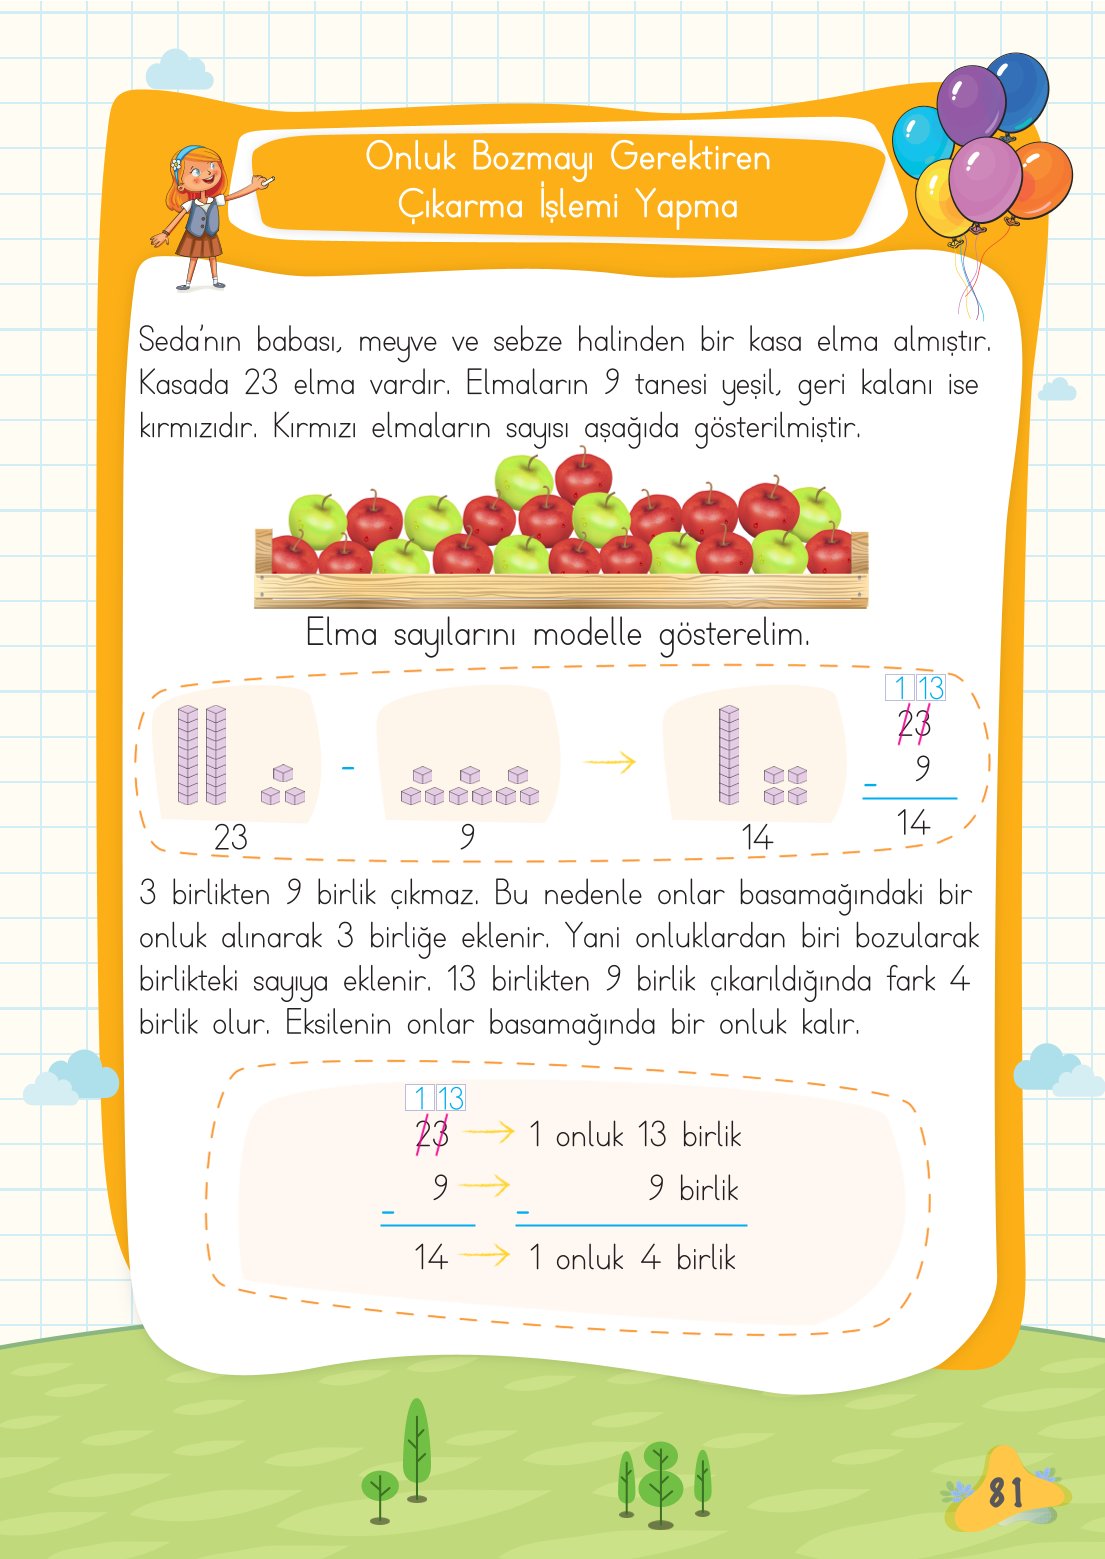 Onluk Bozmayı Gerektiren
Çıkarma İşlemi Yapma
Seda'nın babası, meyve ve sebze halinden bir kasa elma almıştır.
Kasada 23 elma vardır. Elmaların 9 tanesi yeşil, geri kalanı ise
kırmızıdır. Kırmızı elmaların sayısı aşağıda gösterilmiştir.
Elma sayılarını modelle gösterelim.
1 13
23
- 9
14
23 - 9 14
3 birlikten 9 birlik çıkmaz. Bu nedenle onlar basamağındaki bir
onluk alınarak 3 birliğe eklenir. Yani onluklardan biri bozularak
birlikteki sayıya eklenir. 13 birlikten 9 birlik çıkarıldığında fark 4
birlik olur. Eksilenin onlar basamağında bir onluk kalır.
1 13
23 1 onluk 13 birlik
- 9 - 9 birlik
14 1 onluk 4 birlik
81